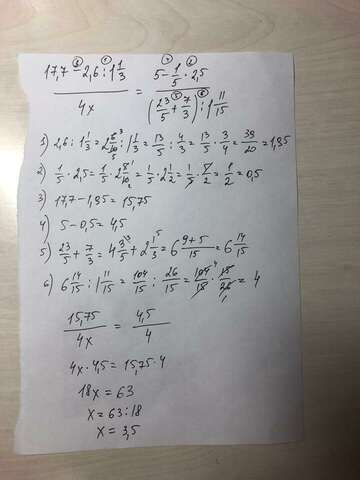 (17,7 - 2,6 : 1 1/3) / 4x = (5 - 1/5 · 2,5) / ((23/5 + 7/3) : 1 11/15)
1) 2,6 : 1 1/3 = 2 6/10 : 1 1/3 = 13/5 : 4/3 = 13/5 · 3/4 = 39/20 = 1,95
2) 1/5 · 2,5 = 1/5 · 2 5/10 = 1/5 · 2 1/2 = 1/5 · 5/2 = 1/2 = 0,5
3) 17,7 - 1,95 = 15,75
4) 5 - 0,5 = 4,5
5) 23/5 + 7/3 = 4 3/5 + 2 1/3 = 6 (9+5)/15 = 6 14/15
6) 6 14/15 : 1 11/15 = 104/15 : 26/15 = 104/15 · 15/26 = 4
15,75 / 4x = 4,5 / 4
4x · 4,5 = 15,75 · 4
18x = 63
x = 63 : 18
x = 3,5